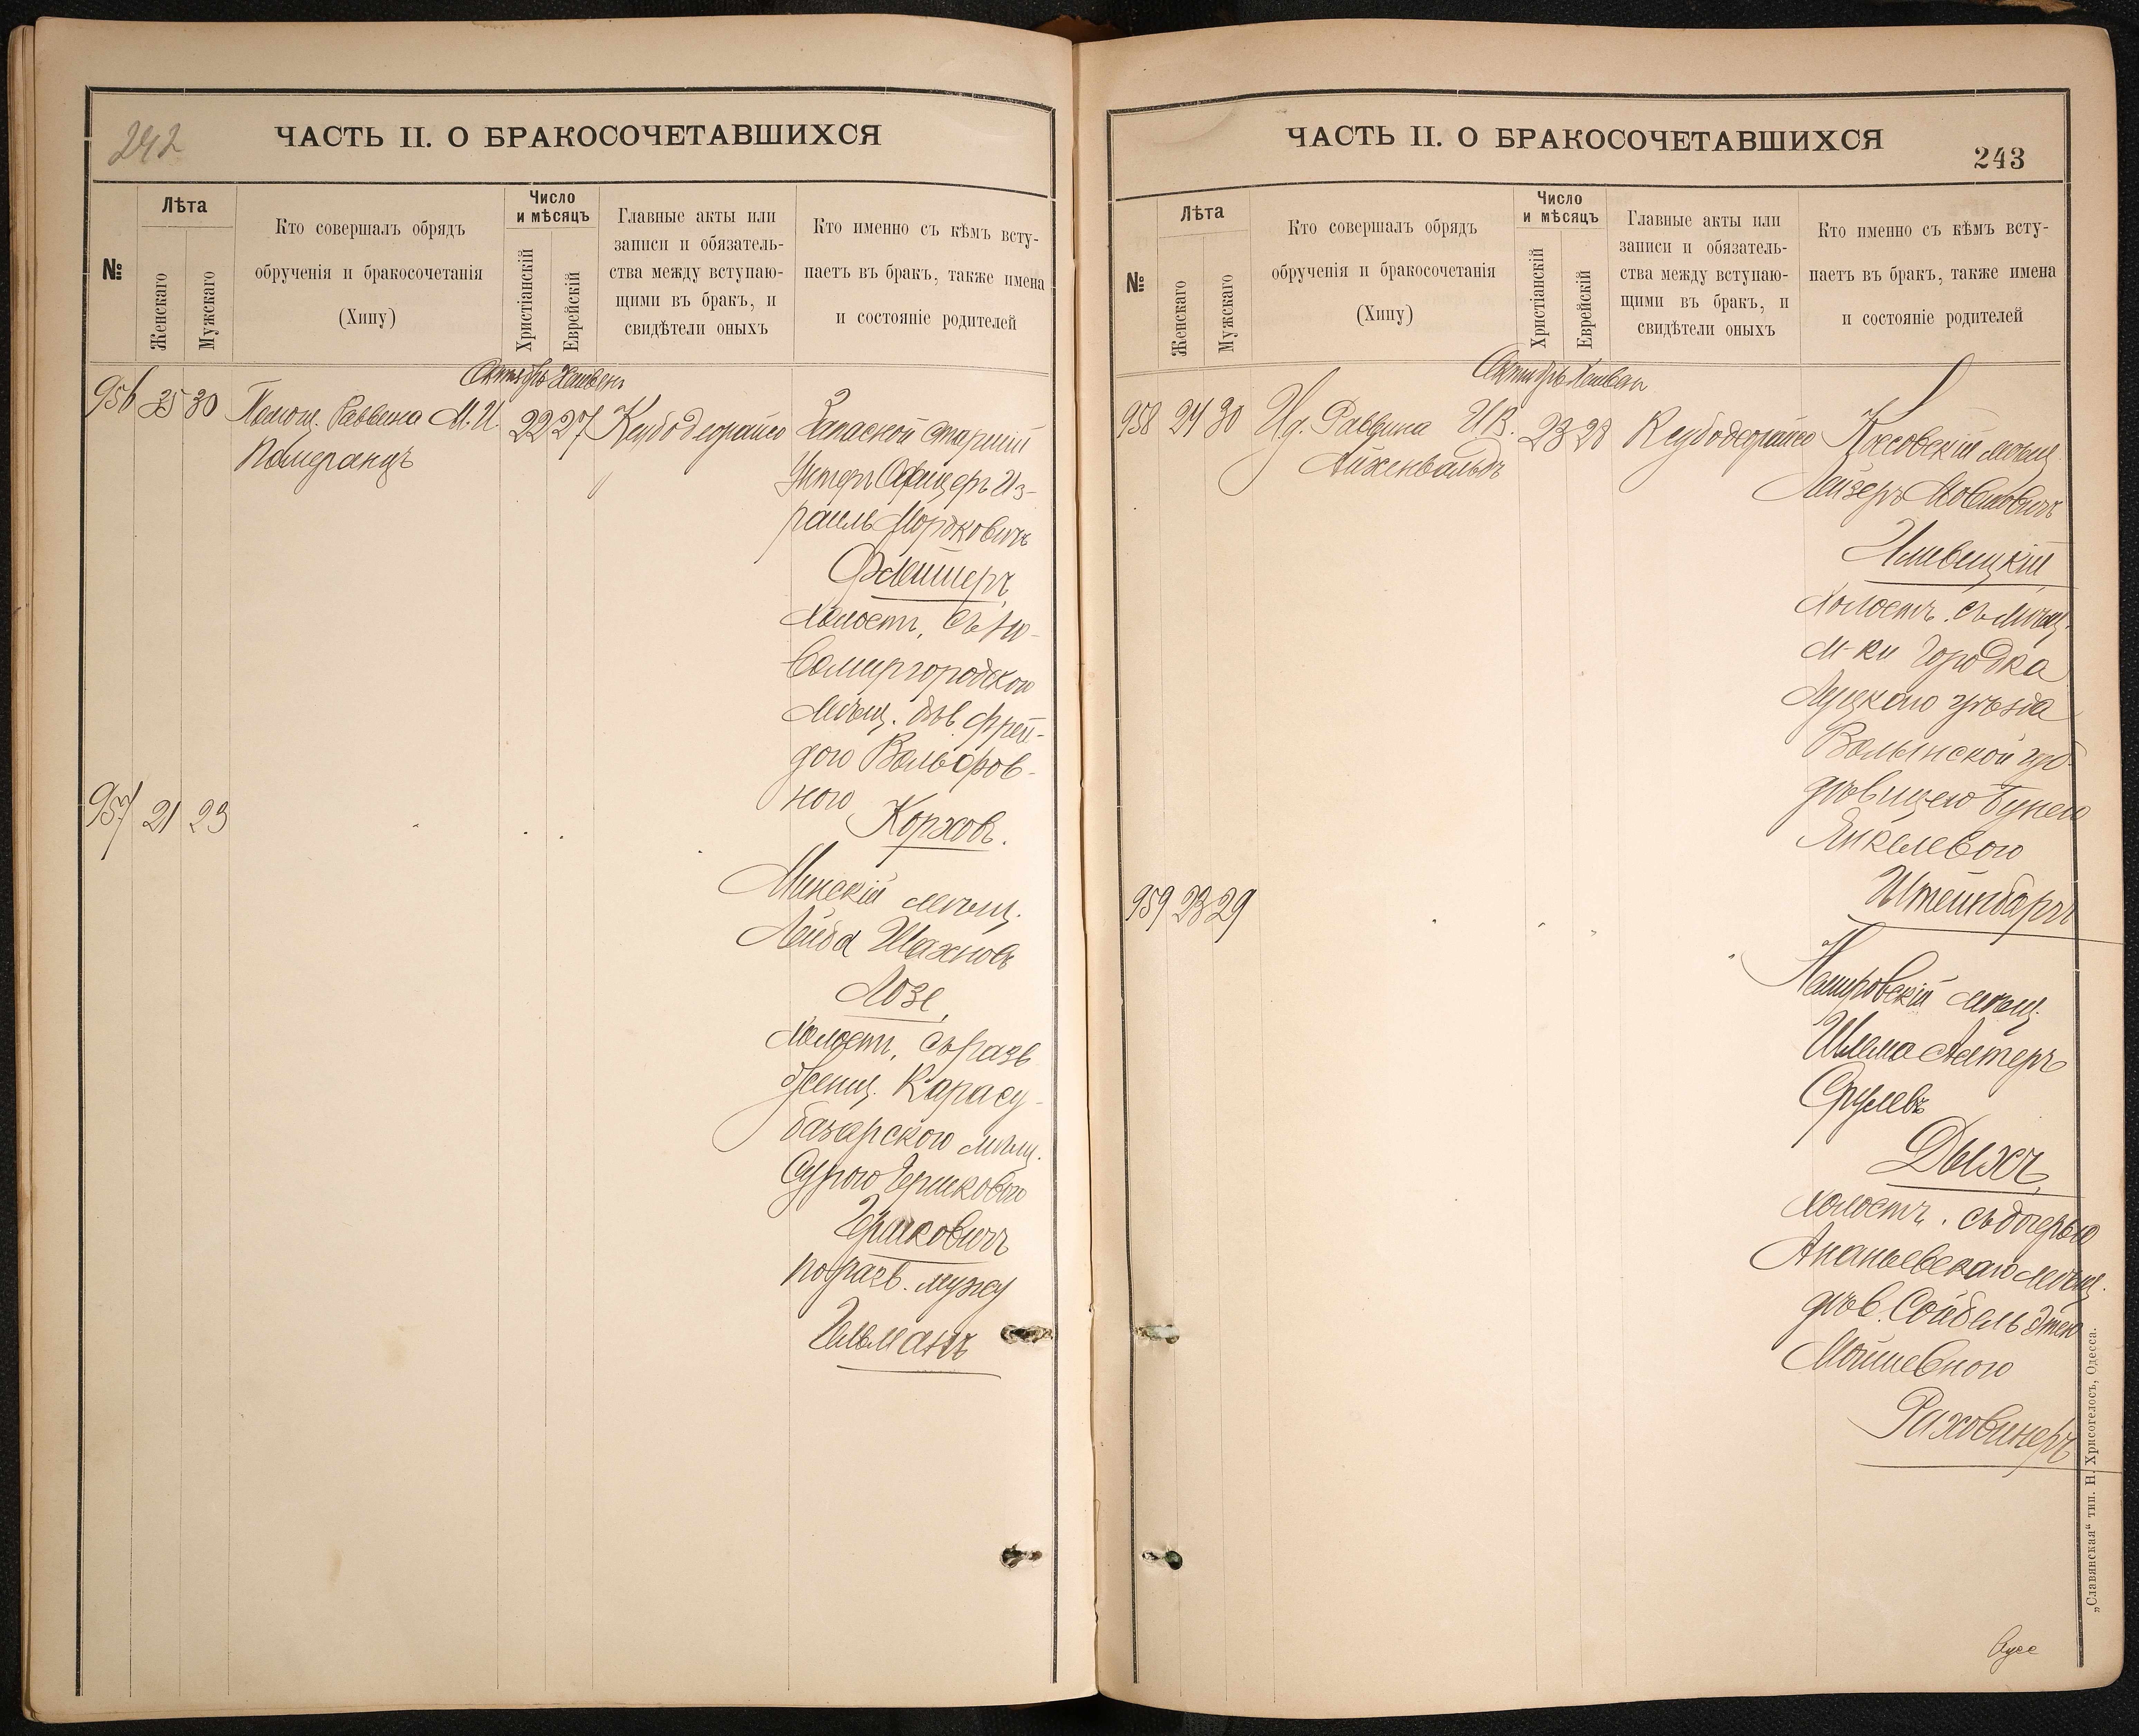 242
ЧАСТЬ II. О БРАКОСОЧЕТАВШИХСЯ
№
Лѣта
Женскаго
Мужскаго
Кто совершалъ обрядъ
обрученія и бракосочетанія
(Хипу)
Число
и мѣсяцъ
Христіанскій
Еврейскій
Главные акты или
записи и обязатель-
ства между вступаю-
щими въ бракъ, и
свидѣтели оныхъ
Кто именно съ кѣмъ всту-
паетъ въ бракъ, также имена
и состояніе родителей
Октябрь Хешвенъ
956 35 30 Помощ. Раввина М. И. 22 27 Ксубодеорайсо
Померанцъ
Запасной старший
Унтеръ Офицеръ Из-
раиль Мордковичъ
Флейшеръ,
холостъ, съ Но-
вомиргородскою
мѣщ. дѣв. Фрей-
дою Вольфов-
ною
Коржовъ.
957 21 23
Минскій мѣщ.
Лейба Шахновъ
Лозе,
холостъ, съ разв.
женщ. Карасу-
базарскою мѣщ.
Сурою Гершковою
Гершковичъ
по разв. мужу
Гельманъ
ЧАСТЬ II. О БРАКОСОЧЕТАВШИХСЯ
243
№
Лѣта
Женскаго
Мужскаго
Кто совершалъ обрядъ
обрученія и бракосочетанія
(Хипу)
Число
и мѣсяцъ
Христіанскій
Еврейскій
Главные акты или
записи и обязатель-
ства между вступаю-
щими въ бракъ, и
свидѣтели оныхъ
Кто именно съ кѣмъ всту-
паетъ въ бракъ, также имена
и состояніе родителей
Октябрь Хешван
958 24 30 И.д. Раввина И.В. 23 28 Ксубодеорайсо
Айхенвальдъ
мѣщ.
Лейзеръ Мовшовичъ
холостъ, съ мѣщ.
м-ки Городка
Луцкаго уѣзда
Волынской губ.
дѣвицею Бунею
Янкелевою
Штейнбаргъ
959 23 29
мѣщ.
Шлема Алтеръ
Срулевъ
Дыхъ,
холостъ, съ дочерью
Ананьевскаго мѣщ.
дѣв. Сойбель Этею
Мошиевною
Раховинеръ
„Славянская“ тип. Н. Хрисогелосъ, Одесса.